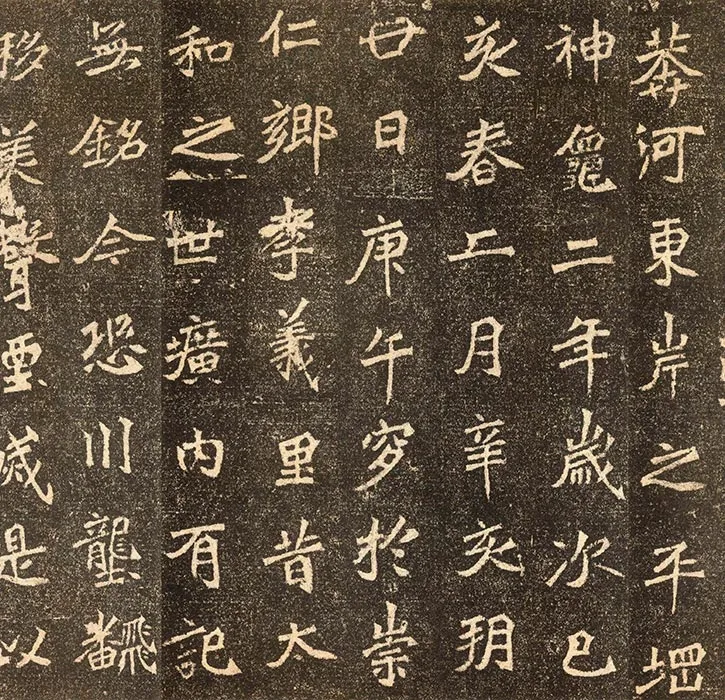 莽河東岸之平堽
神龜二年歲次己
亥春二月辛亥朔
廿日庚午窆於崇
仁鄉孝義里昔太
和之世壙內有記
無銘今恐川壟飜
移美聲堙滅是以